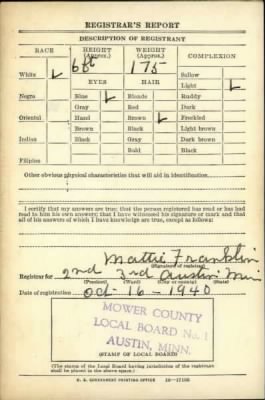 REGISTRAR'S REPORT
DESCRIPTION OF REGISTRANT
RACE HEIGHT (Approx.) WEIGHT (Approx.) COMPLEXION
6 ft 175 Sallow
White Light
EYES HAIR
Negro Blue Blonde Ruddy
Gray Red Dark
Oriental Hazel Brown Freckled
Brown Black Light brown
Indian Black Gray Dark brown
Bald Black
Filipino
Other obvious physical characteristics that will aid in identification
I certify that my answers are true; that the person registered has read or has had read to him his own answers; that I have witnessed his signature or mark and that all of his answers of which I have knowledge are true, except as follows:
Mattie Franklin
(Signature of registrar)
Registrar for 2nd 3rd Austin Minn
(Precinct) (Ward) (City or county) (State)
Date of registration Oct-16-1940
MOWER COUNTY
LOCAL BOARD No. 1
AUSTIN, MINN.
(STAMP OF LOCAL BOARD)
(The stamp of the Local Board having jurisdiction of the registrant shall be placed in the above space.)
U. S. GOVERNMENT PRINTING OFFICE 16-17105